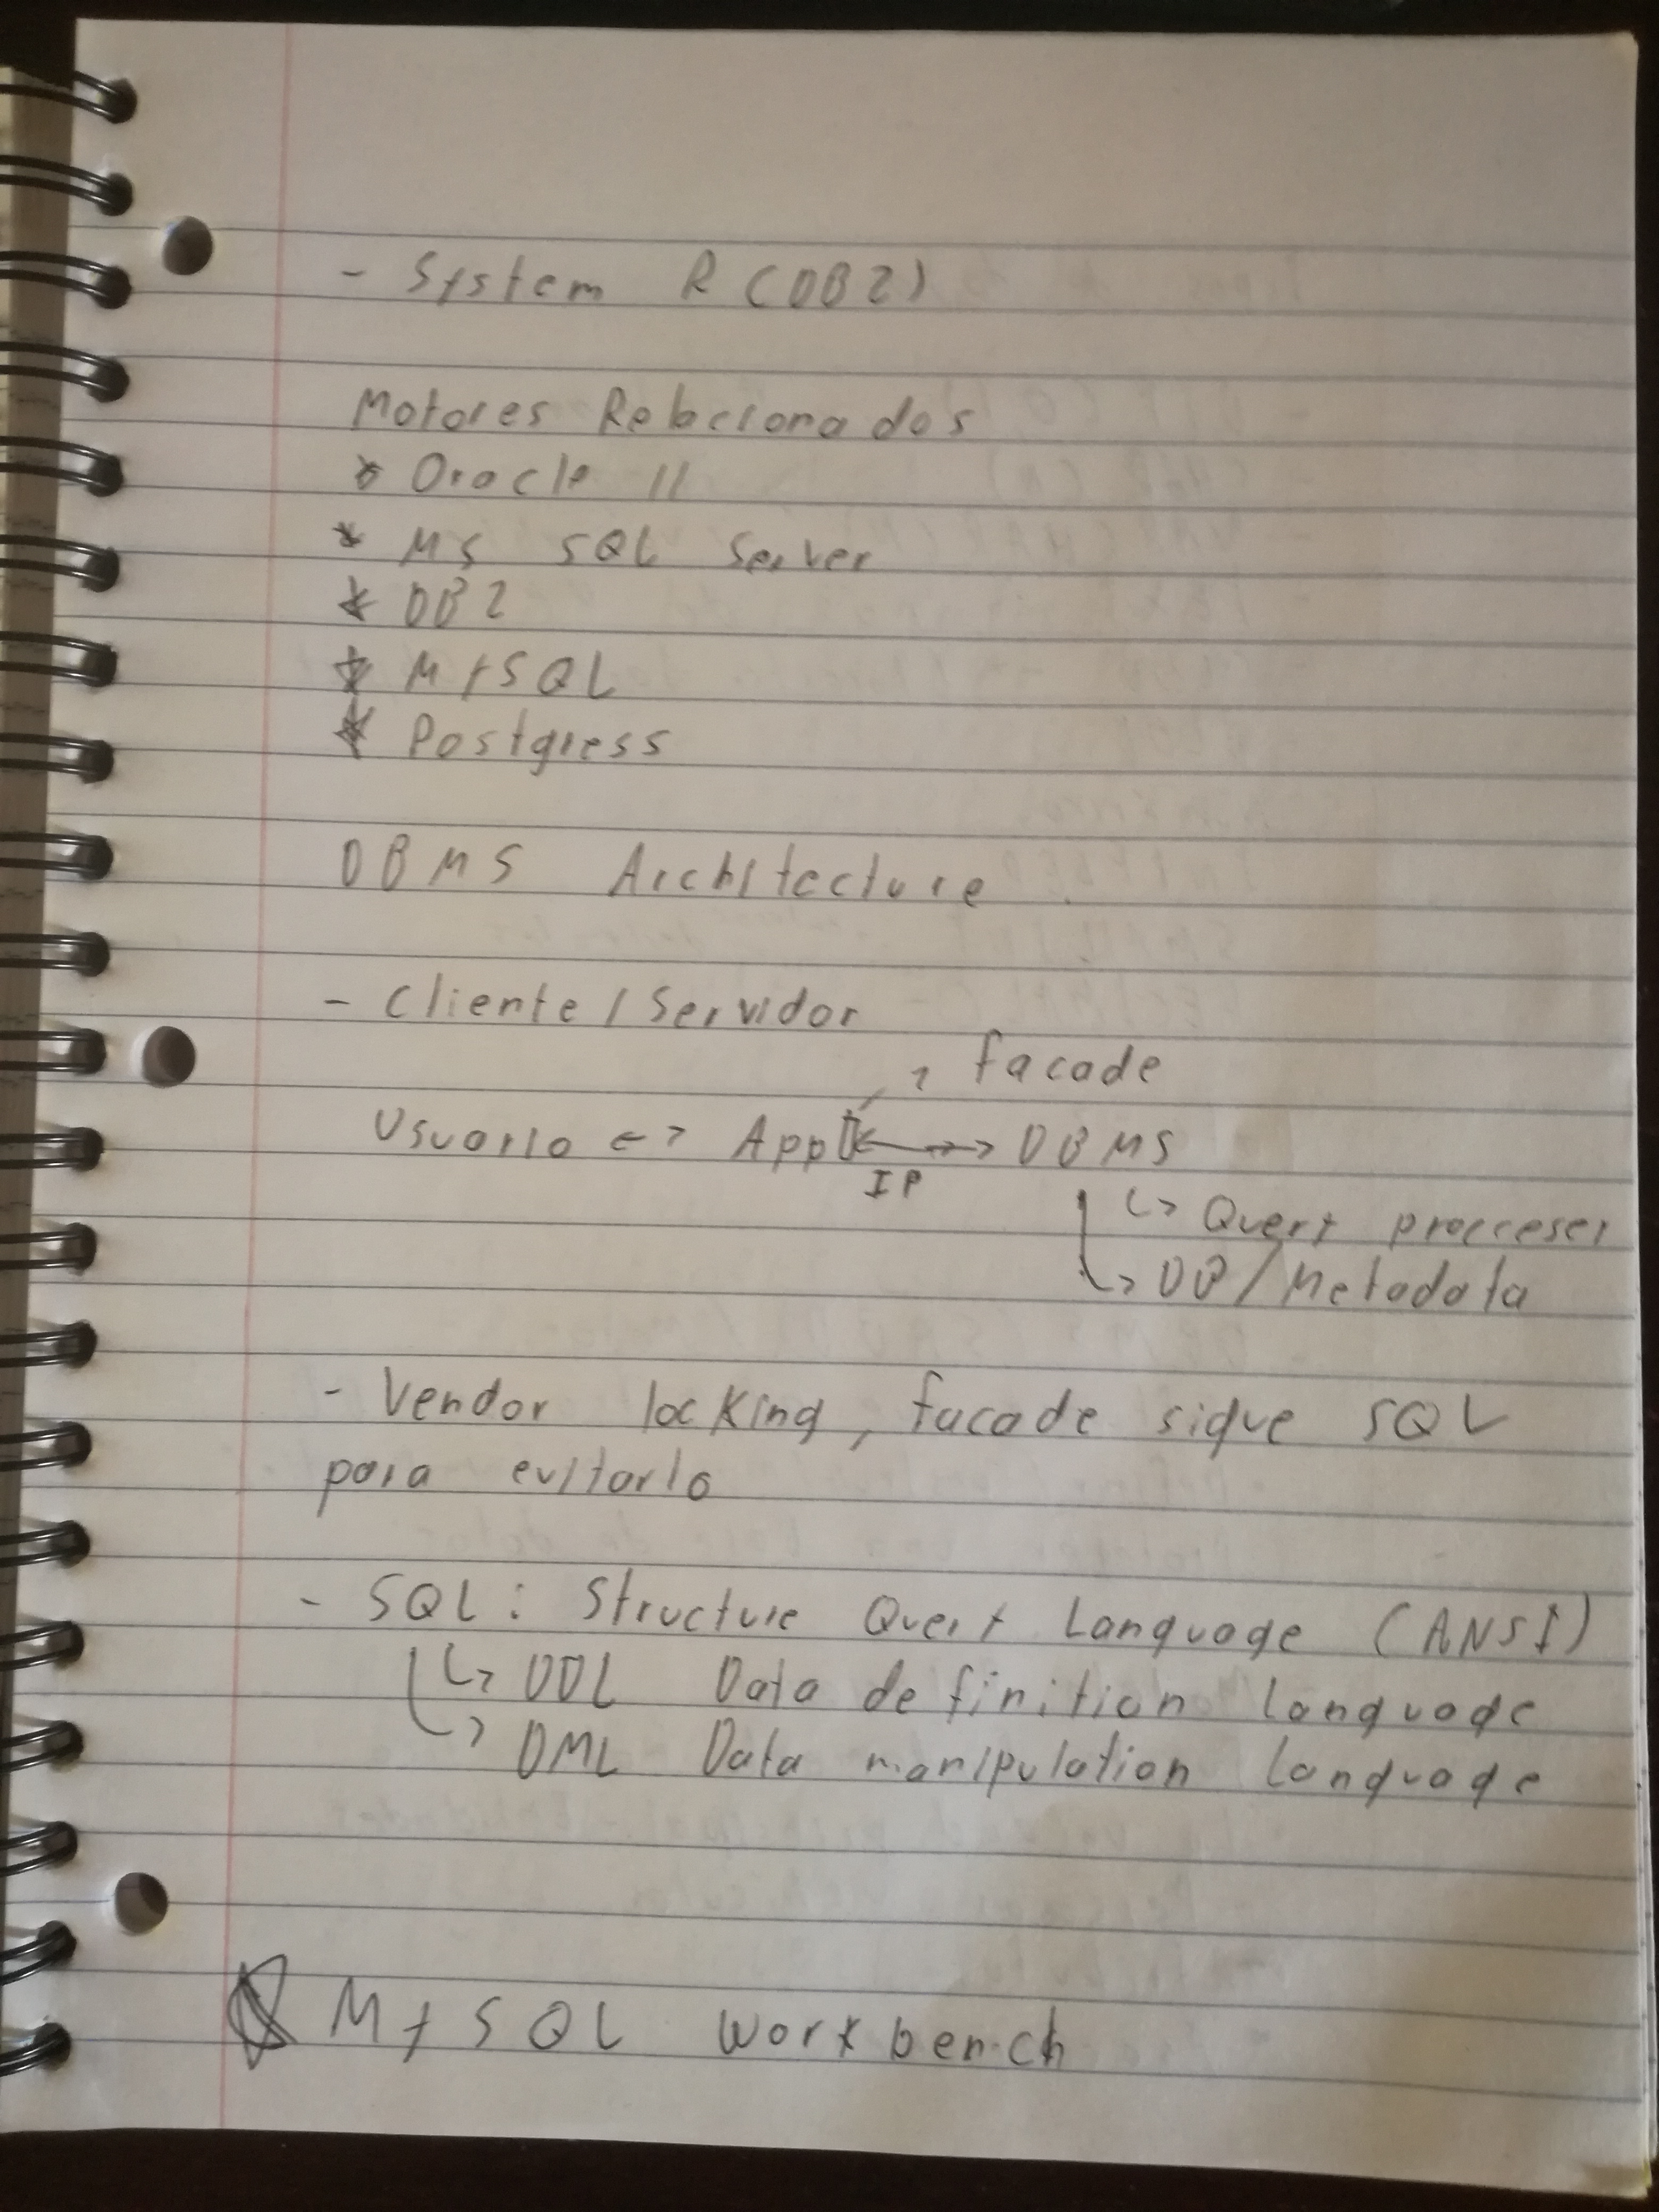 - System R (DB2)
Motores Relacionados
* Oracle 11
* MS SQL Server
* DB2
* MySQL
* Postgress
DBMS Architecture
- Cliente / Servidor
facade
Usuario <-> App <-->> DBMS
IP
↳ Query procceser
↳ DB/Metadata
- Vendor locking, facade sigue SQL
para evitarlo
- SQL: Structure Query Language (ANSI)
↳ DDL Data definition language
↳ DML Data manipulation language
MySQL Workbench